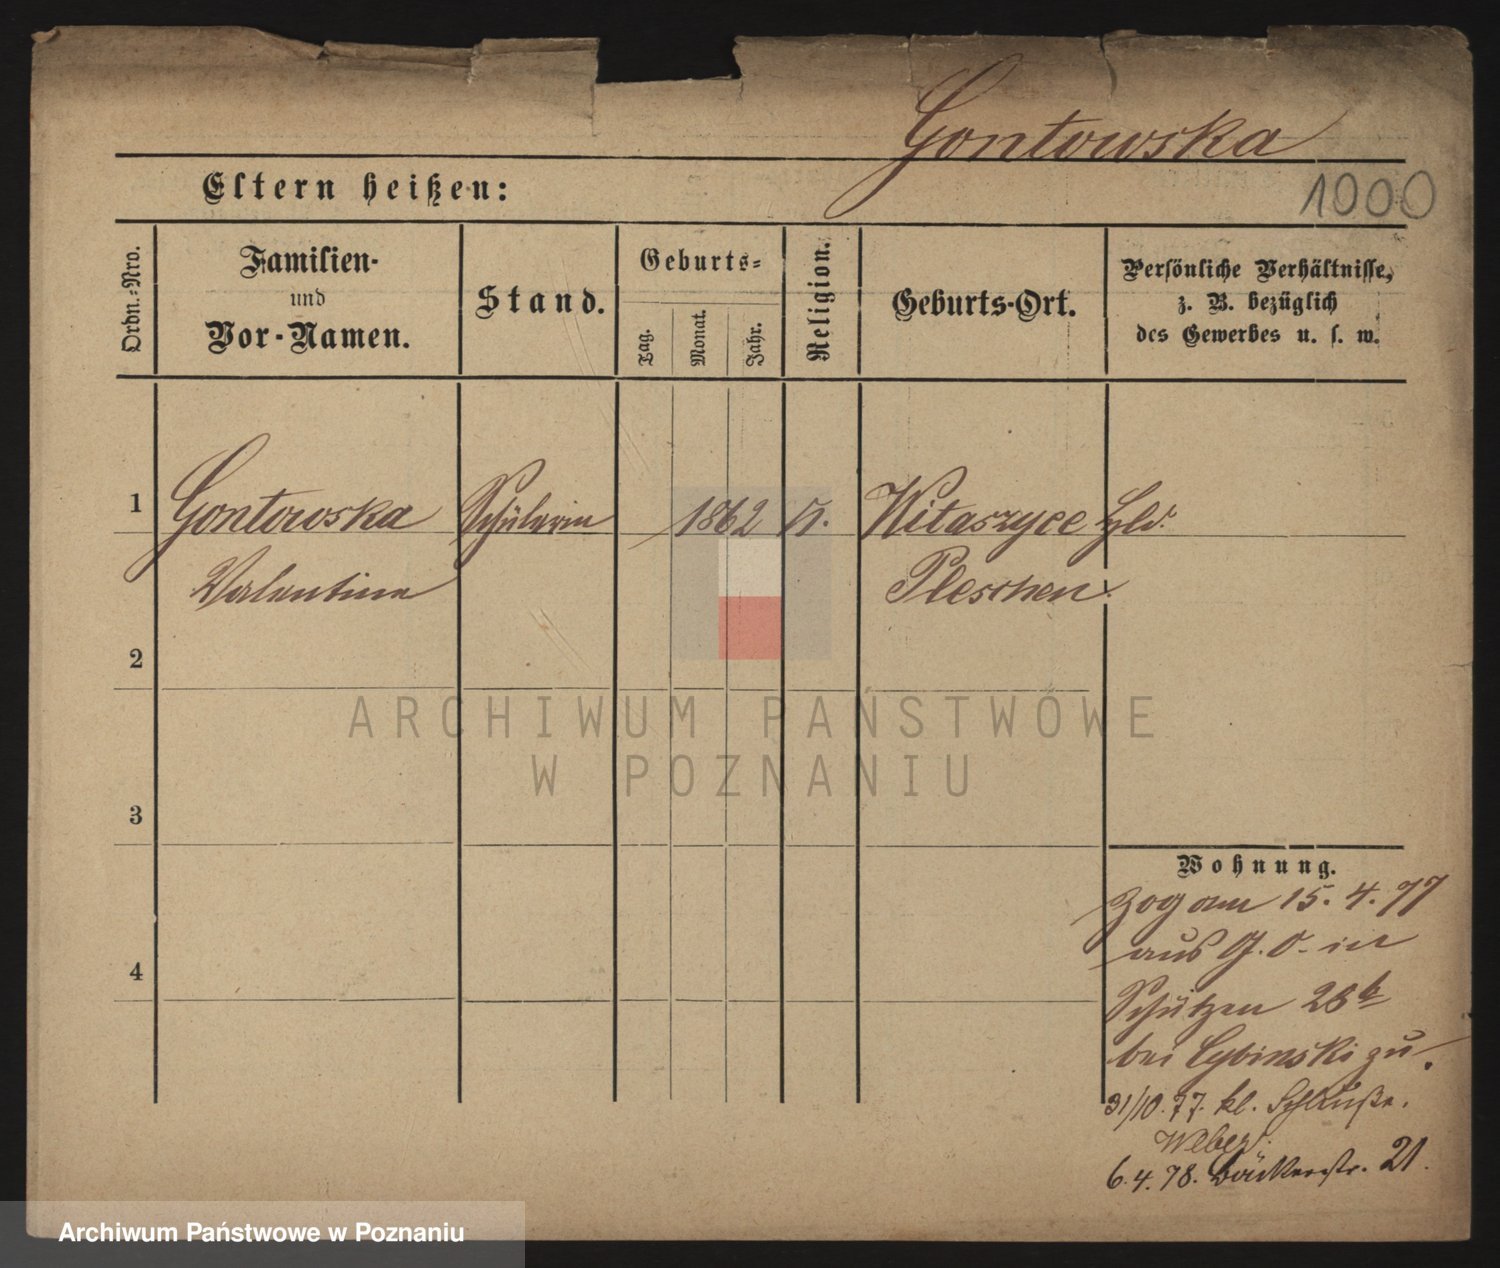 Gontowska
Eltern heißen:
1000
Ordn.-Nro.
Familien-
und
Vor-Namen.
Stand.
Geburts-
Tag.
Monat.
Jahr.
Religion.
Geburts-Ort.
Persönliche Verhältnisse,
z. B. bezüglich
des Gewerbes u. s. w.
1
Gontowska Schülerin 1862 Witaszyce
Valentine Pleschen
2
ARCHIWUM PAŃSTWOWE
W POZNANIU
3
Wohnung.
zog am 15. 4. 77
aus G. O. in
4
Schützen 28b
bei Cybinski zu.
31/10. 77. kl.
6. 4. 78. Bäckerstr. 21.
Archiwum Państwowe w Poznaniu